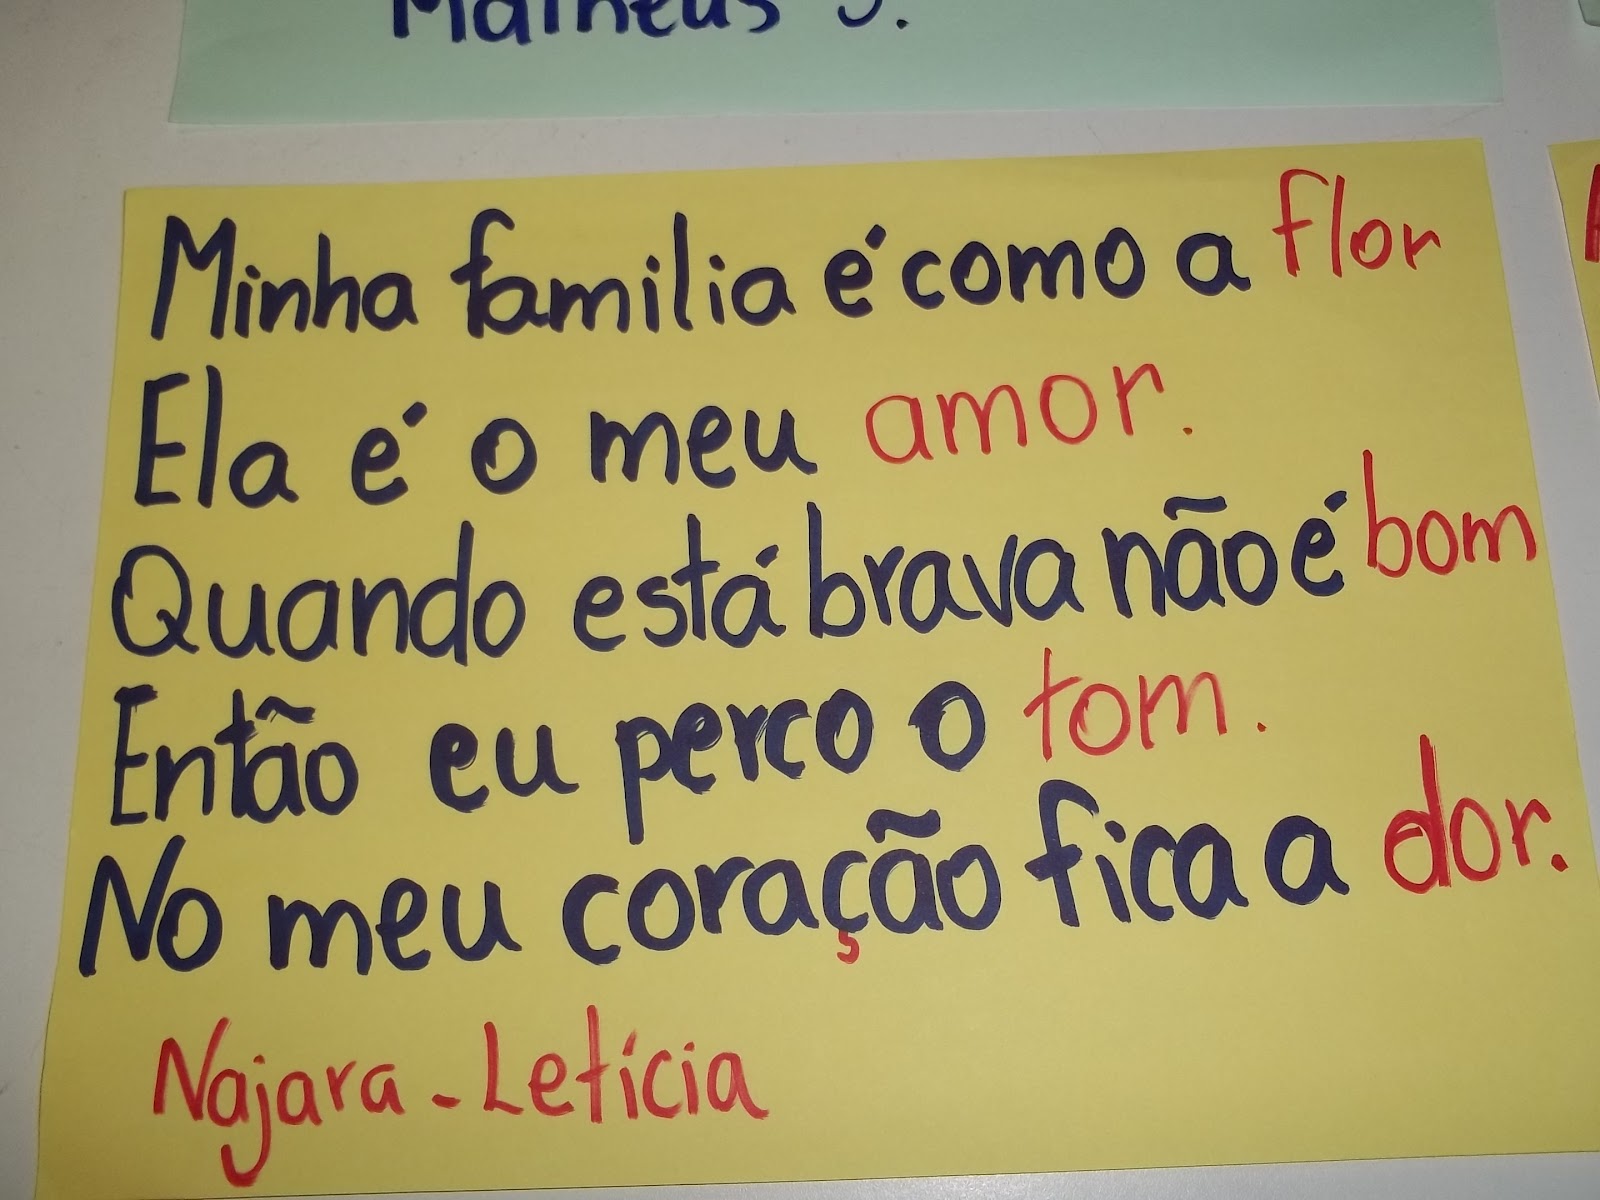 Matheus J.
Minha familia é como a flor
Ela é o meu amor.
Quando está brava não é bom
Então eu perco o tom.
No meu coração fica a dor.
Najara - Letícia